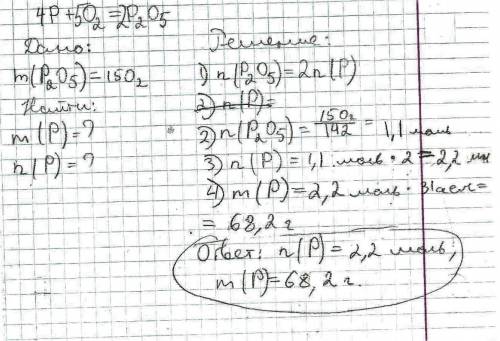 4P+5O₂=2P₂O₅
Дано:
m(P₂O₅)=150г
Найти:
m(P)=?
n(P)=?
Решение:
1) n(P₂O₅)=2n(P)
2) n(P)=
2) n(P₂O₅) = 150г/142 = 1,1 моль
3) n(P) = 1,1 моль · 2 = 2,2 моль
4) m(P) = 2,2 моль ·
= 68,2 г
Ответ: n(P) = 2,2 моль,
m(P)=68,2 г.